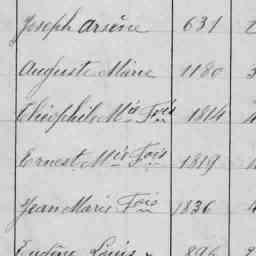 Joseph Arsène 631
Auguste Marie 1180 3
Théophile Mie Fois 1814 4
Ernest Mie Fois 1819
Jean Marie Fois 1836 4
Louis 896